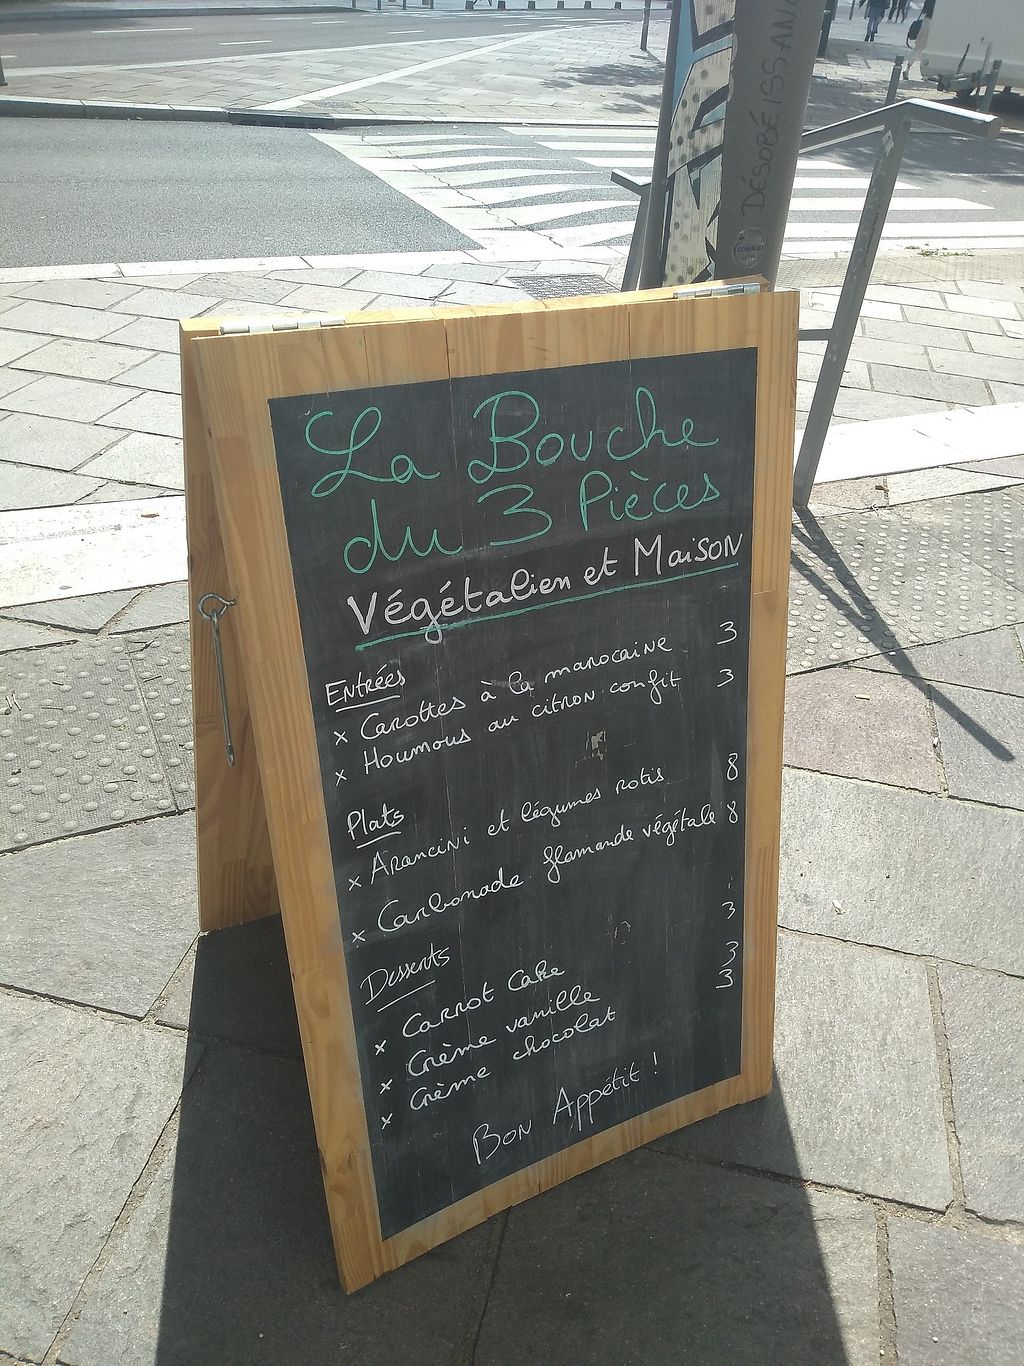 DÉSOBÉISSANC
La Bouche
du 3 Pièces
Végétalien et Maison
Entrées
x Carottes à la marocaine 3
x Houmous au citron confit 3
Plats
x Arancini et légumes rotis 8
x Carbonade flamande végétale 8
Desserts
x Carrot Cake 3
x Crème vanille 3
x Crème chocolat 3
Bon Appétit !